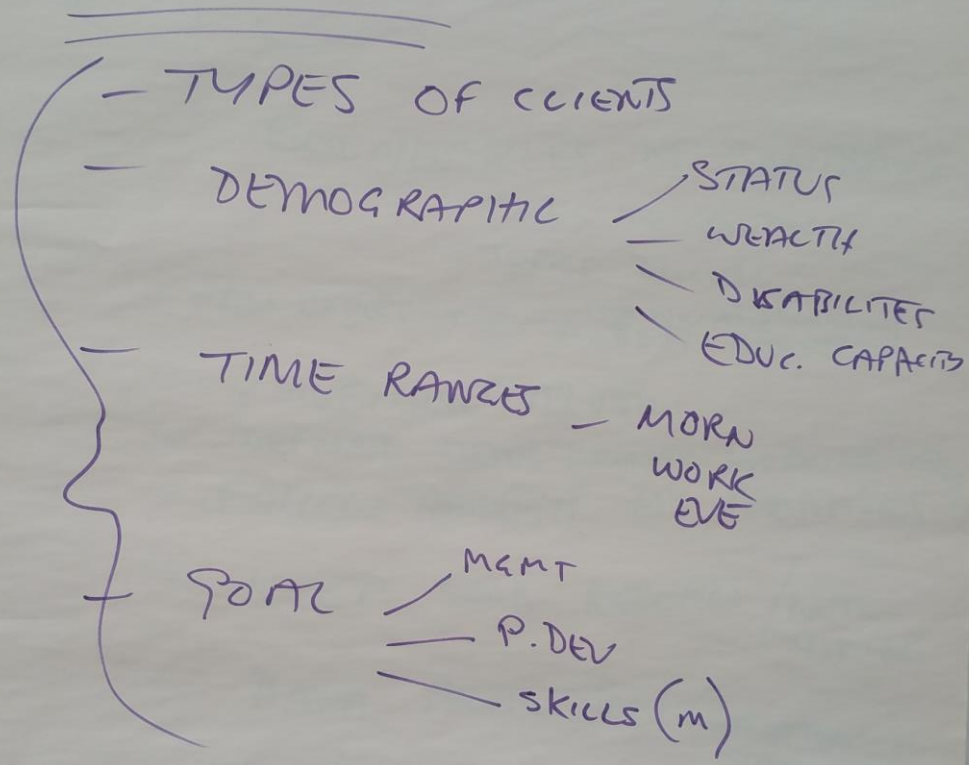 - TYPES OF CLIENTS
- DEMOGRAPHIC
STATUS
- WEALTH
DISABILITES
EDUC. CAPACITY
- TIME RANGES
- MORN
WORK
EVE
- GOAL
MGMT
- P. DEV
SKILLS (m)